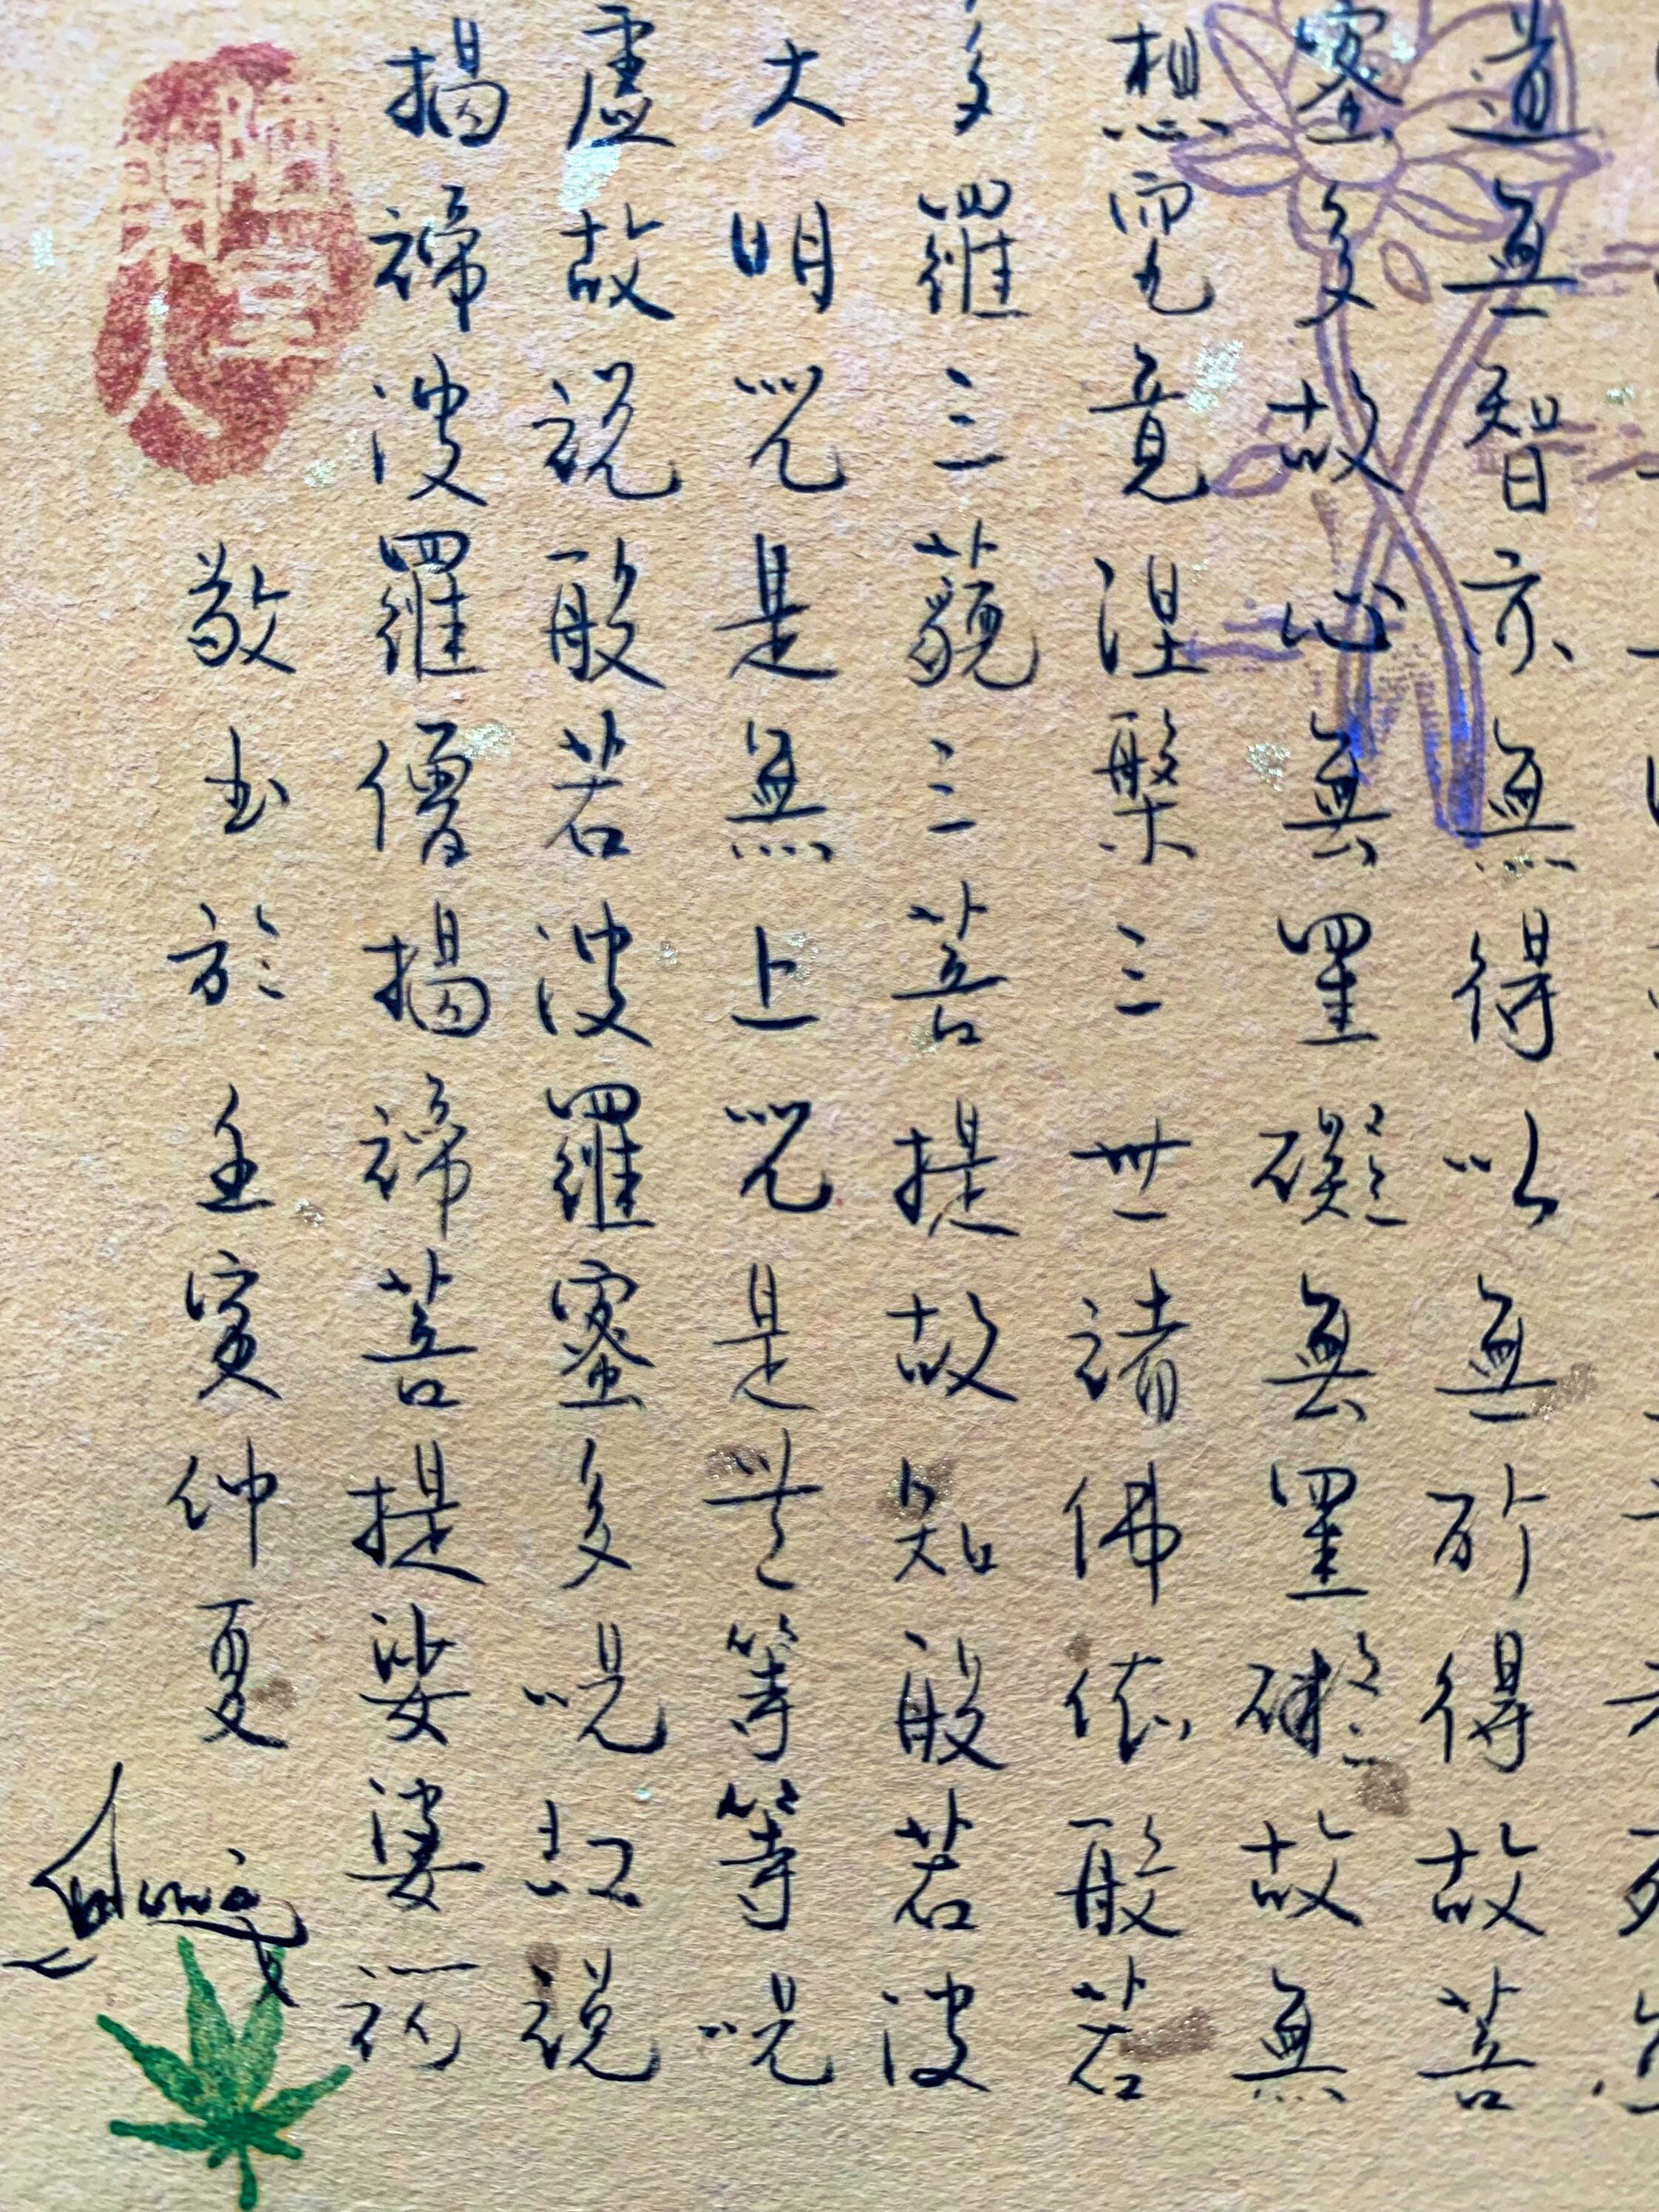 道無智亦無得以無所得故菩
蜜多故心無罣礙無罣礙故無
想究竟涅槃三世諸佛依般若
多羅三藐三菩提故知般若波
大明咒是無上咒是無等等呪
虛故說般若波羅蜜多呪即說
揭諦波羅僧揭諦菩提娑婆訶
敬書於壬寅仲夏